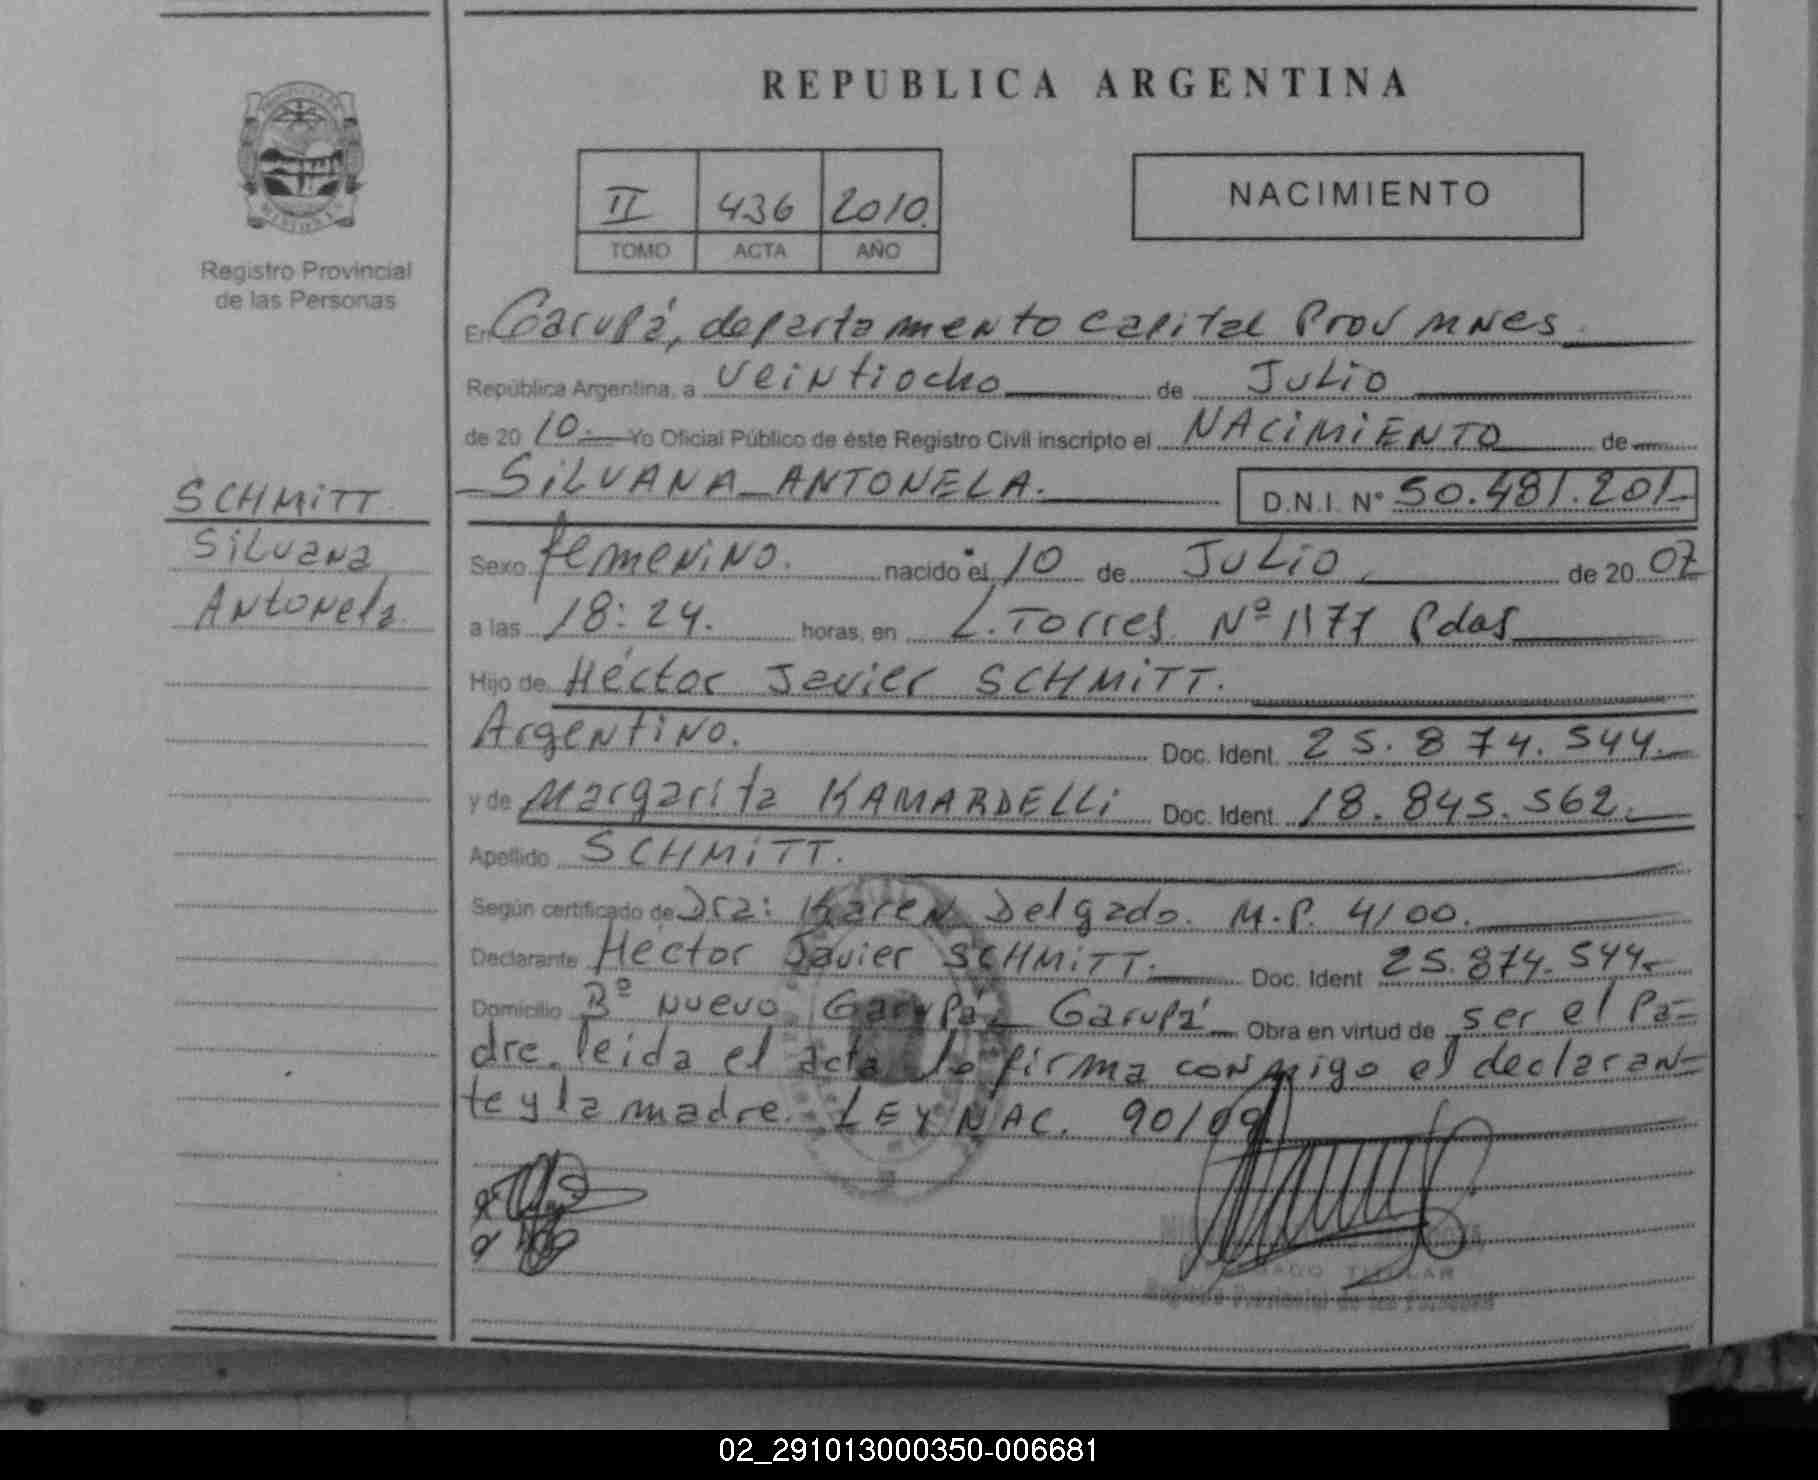 REPUBLICA ARGENTINA
NACIMIENTO
II 436 2010.
TOMO ACTA AÑO
Registro Provincial
de las Personas
SCHMITT.
Silvana
Antonela.
En Garupá, departamento capital Prov mnes.
República Argentina, a veintiocho de Julio
de 20 10.- Yo Oficial Público de éste Registro Civil inscripto el NACIMIENTO de
SILVANA ANTONELA. D.N.I. Nº 50.481.201.-
Sexo femenino. nacido el 10 de Julio de 20 07
a las 18:24. horas, en L. Torres Nº 1177 Pdas
Hijo de Héctor Javier SCHMITT.
Argentino. Doc. Ident. 25.874.544.-
y de Margarita KAMARDELLI Doc. Ident. 18.845.562.-
Apellido SCHMITT.
Según certificado de Dra: Karen Delgado. M.P. 4100.
Declarante Héctor Javier SCHMITT.- Doc. Ident 25.874.544.-
Domicilio Bº nuevo Garupá- Garupá- Obra en virtud de ser el Pa=
dre. leida el acta lo firma conmigo el declaran=
te y la madre. LEY NAC. 90/09
TITULAR
Registro Provincial de las Personas
02_291013000350-006681